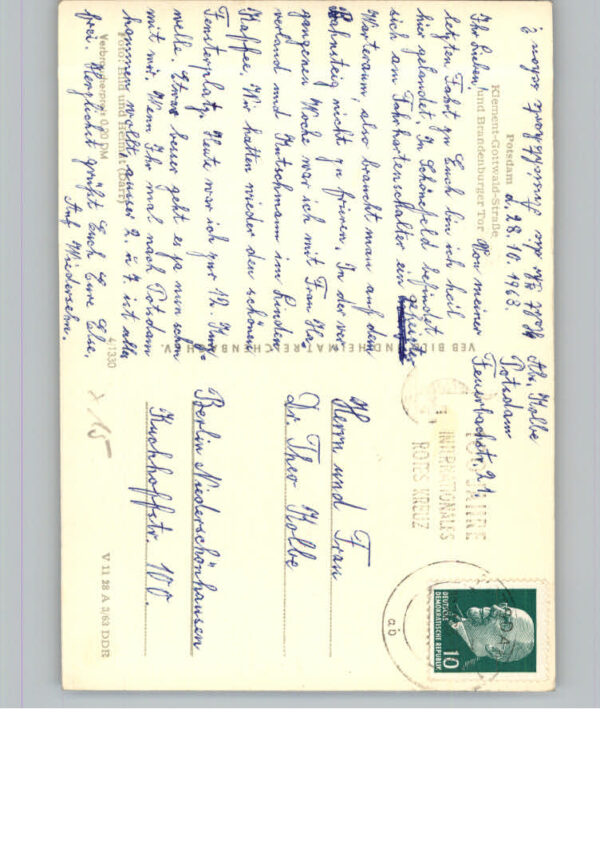 Potsdam
d. 28.10.1963.
Klement-Gottwald-Straße
und Brandenburger Tor
Ihr Lieben, Von meiner
letzten Fahrt zu Euch bin ich heil
hier gelandet. In Schönefeld befindet
sich am Fahrkartenschalter ein geheizter
Warteraum, also braucht man auf dem
Bahnsteig nicht zu frieren. In der ver-
gangenen Woche war ich mit Frau Ha-
verland und Gutschmann im Linden
Kaffee. Wir hatten wieder den schönen
Fensterplatz. Heute war ich zur 12.
Etwas besser geht es ja nun schon
mit mir. Wenn Ihr mal nach Potsdam
kommen wollt, ausser 2. u. 7. ist alles
frei. Herzlichst grüßt Euch Eure Else,
Auf Wiedersehn.
Foto: Bild und Heimat (Darr)
Verbraucherpreis 0,20 DM
4/1330
VEB BILD UND HEIMAT REICHENBACH I. V.
Abs. Kolbe
Potsdam
Feuerbachstr. 21
100 JAHRE
INTERNATIONALES
ROTES KREUZ
DEUTSCHE
DEMOKRATISCHE REPUBLIK
10
Herrn und Frau
Dr. Theo Kolbe
Berlin Niederschönhausen
Kuckhoffstr. 100.
15
V 11 28 A 3/63 DDR